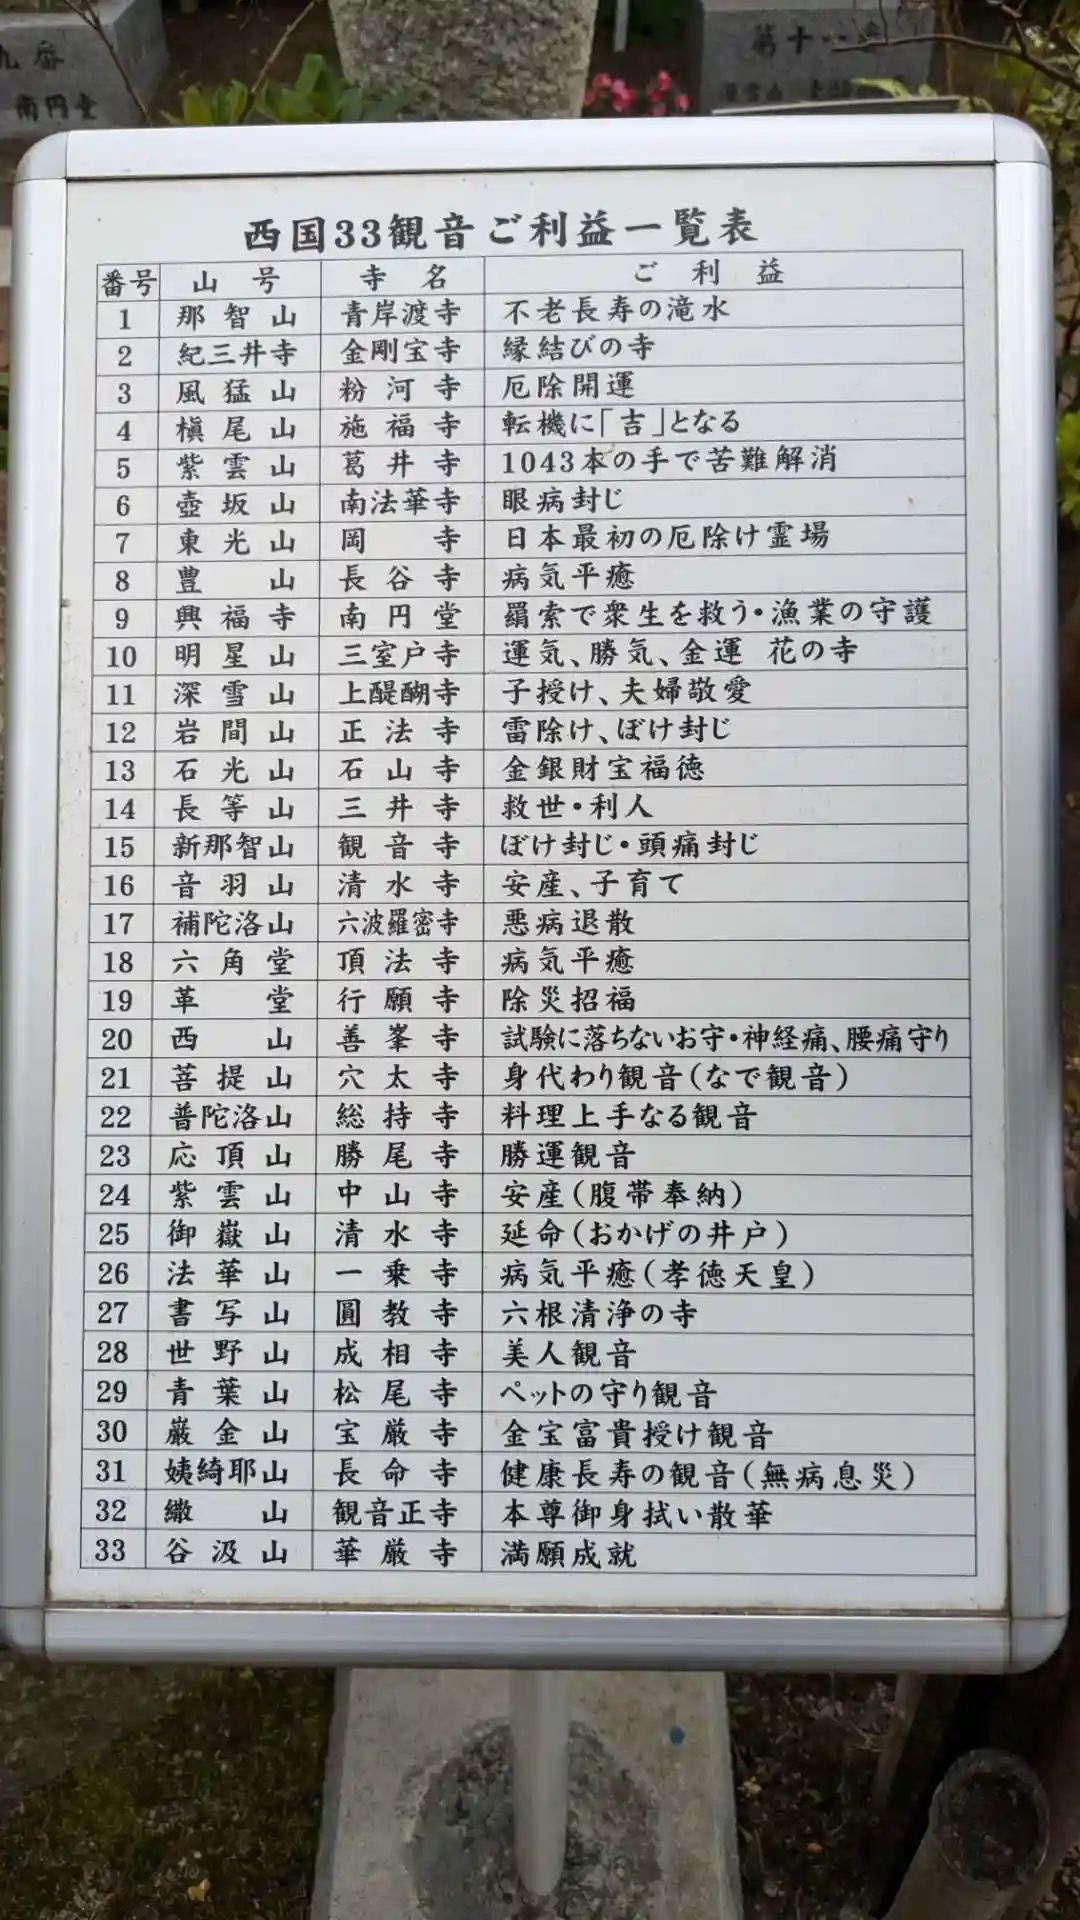 九番
南円堂
第十一番
西国33観音ご利益一覧表
番号 山号 寺名 ご利益
1 那智山 青岸渡寺 不老長寿の滝水
2 紀三井寺 金剛宝寺 縁結びの寺
3 風猛山 粉河寺 厄除開運
4 槇尾山 施福寺 転機に「吉」となる
5 紫雲山 葛井寺 1043本の手で苦難解消
6 壺坂山 南法華寺 眼病封じ
7 東光山 岡寺 日本最初の厄除け霊場
8 豊山 長谷寺 病気平癒
9 興福寺 南円堂 羂索で衆生を救う・漁業の守護
10 明星山 三室戸寺 運気、勝気、金運 花の寺
11 深雪山 上醍醐寺 子授け、夫婦敬愛
12 岩間山 正法寺 雷除け、ぼけ封じ
13 石光山 石山寺 金銀財宝福徳
14 長等山 三井寺 救世・利人
15 新那智山 観音寺 ぼけ封じ・頭痛封じ
16 音羽山 清水寺 安産、子育て
17 補陀洛山 六波羅密寺 悪病退散
18 六角堂 頂法寺 病気平癒
19 革堂 行願寺 除災招福
20 西山 善峯寺 試験に落ちないお守・神経痛、腰痛守り
21 菩提山 穴太寺 身代わり観音(なで観音)
22 普陀洛山 総持寺 料理上手なる観音
23 応頂山 勝尾寺 勝運観音
24 紫雲山 中山寺 安産(腹帯奉納)
25 御嶽山 清水寺 延命(おかげの井戸)
26 法華山 一乗寺 病気平癒(孝徳天皇)
27 書写山 圓教寺 六根清浄の寺
28 世野山 成相寺 美人観音
29 青葉山 松尾寺 ペットの守り観音
30 巌金山 宝厳寺 金宝富貴授け観音
31 姨綺耶山 長命寺 健康長寿の観音(無病息災)
32 繖山 観音正寺 本尊御身拭い散華
33 谷汲山 華厳寺 満願成就